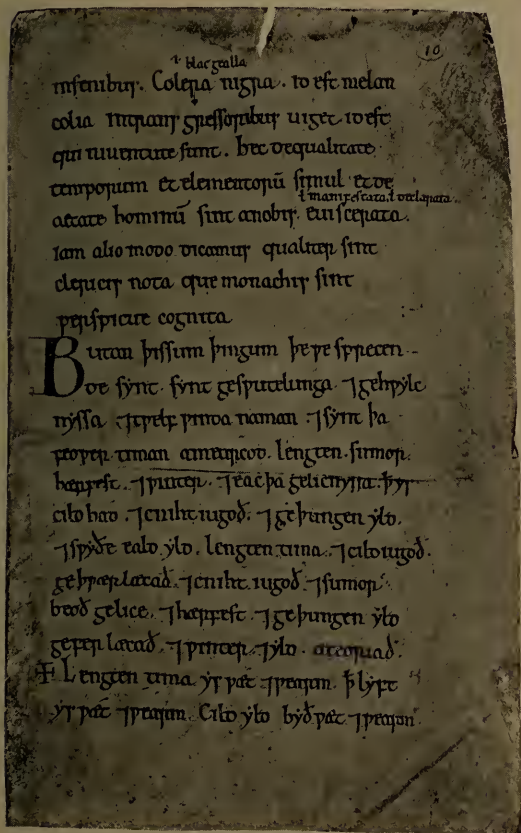 10
ł blac gealla
insenibus. Colera nigra. id est melan
colia intrans gressoribus uiget id est
qui iuuentute sunt. hec de qualitate
temporum et elementorū simul et de
ł manifestata. ł declarata.
aetate hominū sint anobis euiscerata.
Iam alio modo dicamus qualiter sint
clericis nota que monachis sint
perispicue cognita
Butan þissum þingum þe ƿe sprecen
de synt. synt gesputelunga. ⁊gehƿylc
nyssa. ⁊tƿelf ƿinda naman. ⁊synt þa
feoƿer timan amearcod. lengten. sumor.
hærfest. ⁊ƿinter. ⁊eac þa gelicnyssa. þys
cild had. ⁊cniht iugoð. ⁊geþungen yld.
⁊sƿyðe eald. yld. lengten tima. ⁊cild iugoð.
geþƿærlæcað. ⁊cniht. iugoð ⁊sumor
beoð gelice. ⁊hærfest. ⁊geþungen yld
geferlæcað. ⁊ƿinter. ⁊yld. ateoriað.
Lengten tima. ys ƿæt ⁊ƿearm. ꝥ lyft
ys ƿæt ⁊ƿearm. Cild yld byð ƿæt ⁊ƿearm